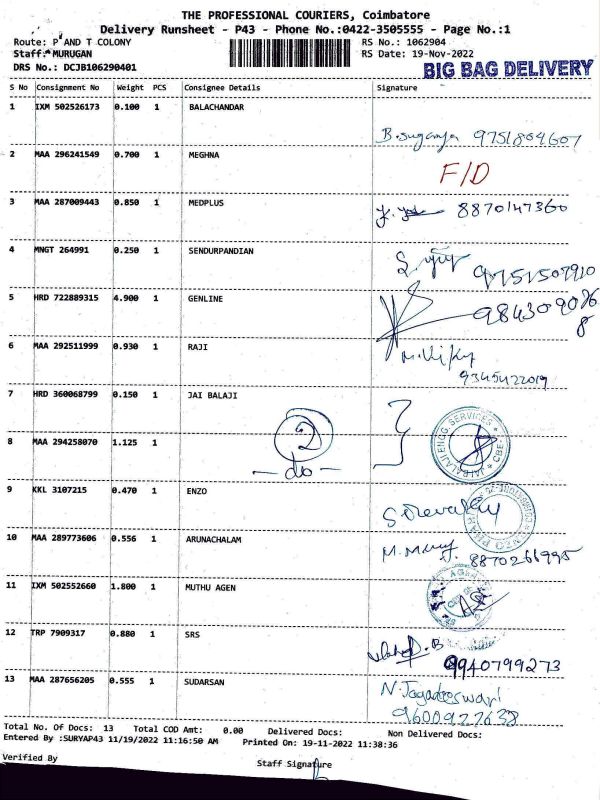 THE PROFESSIONAL COURIERS, Coimbatore
Delivery Runsheet - P43 - Phone No.:0422-3505555 - Page No.:1
Route: P AND T COLONY RS No.: 1062904
Staff: MURUGAN RS Date: 19-Nov-2022
DRS No.: DCJB106290401 BIG BAG DELIVERY
S No Consignment No Weight PCS Consignee Details Signature
1 IXM 502526173 0.100 1 BALACHANDAR
B.suganya 9751804607
2 MAA 296241549 0.700 1 MEGHNA
F/D
3 MAA 287009443 0.850 1 MEDPLUS 8870147360
4 MNGT 264991 0.250 1 SENDURPANDIAN
9751507910
5 HRD 722889315 4.900 1 GENLINE 9843090768
6 MAA 292511999 0.930 1 RAJI
M.Vicky
9345422019
7 HRD 360068799 0.150 1 JAI BALAJI
JAI BALAJI ENGG. SERVICES CBE
2
8 MAA 294258070 1.125 1
— do —
9 KKL 3107215 0.470 1 ENZO
10 MAA 289773606 0.556 1 ARUNACHALAM
8870266995
11 IXM 502552660 1.800 1 MUTHU AGEN
12 TRP 7909317 0.880 1 SRS
9940799273
13 MAA 287656205 0.555 1 SUDARSAN
N.Jagadeeswari
9600927638
Total No. Of Docs: 13 Total COD Amt: 0.00 Delivered Docs: Non Delivered Docs:
Entered By :SURYAP43 11/19/2022 11:16:50 AM Printed On: 19-11-2022 11:38:36
Verified By Staff Signature